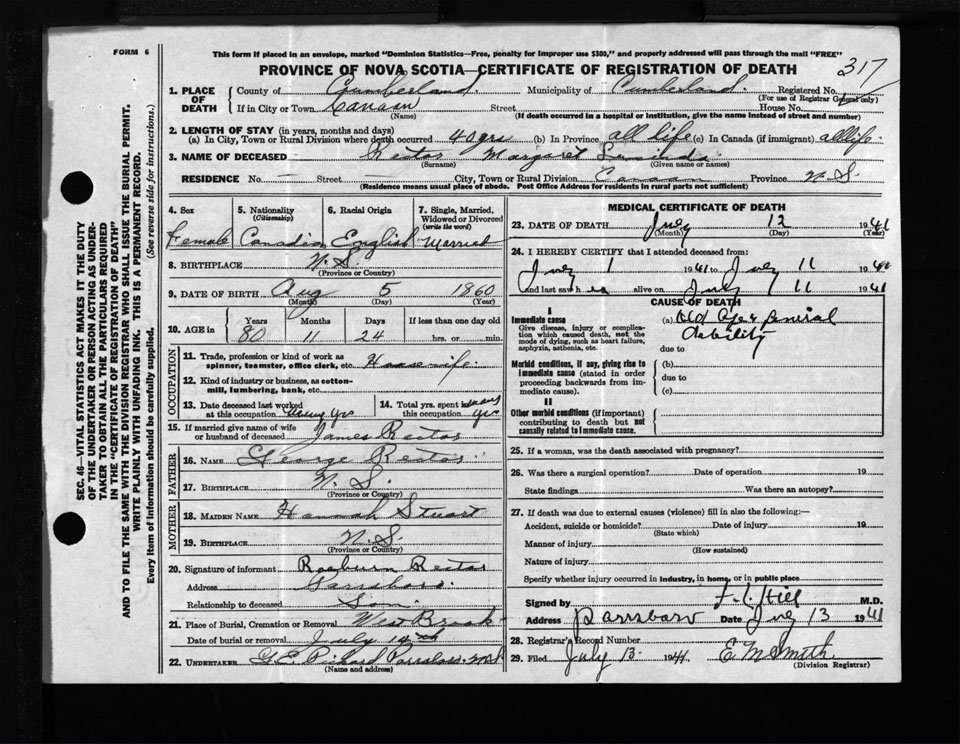 FORM 6
This form if placed in an envelope, marked "Dominion Statistics—Free, penalty for improper use $300," and properly addressed will pass through the mail "FREE"
PROVINCE OF NOVA SCOTIA—CERTIFICATE OF REGISTRATION OF DEATH
317
1. PLACE OF DEATH
County of Cumberland. Municipality of Cumberland. Registered No.
(For use of Registrar General only)
If in City or Town Canaan Street House No.
(Name) (If death occurred in a hospital or institution, give the name instead of street and number)
2. LENGTH OF STAY (in years, months and days)
(a) In City, Town or Rural Division where death occurred 40 yrs (b) In Province all life (c) In Canada (if immigrant) all life
3. NAME OF DECEASED Rector Margaret Lucinda
(Surname) (Given name or names)
RESIDENCE No. — Street City, Town or Rural Division Canaan Province N.S.
(Residence means usual place of abode. Post Office Address for residents in rural parts not sufficient)
4. Sex Female
5. Nationality (Citizenship) Canadian
6. Racial Origin English
7. Single, Married, Widowed or Divorced (write the word) Married
8. BIRTHPLACE N.S.
(Province or Country)
9. DATE OF BIRTH Aug 5 1860
(Month) (Day) (Year)
10. AGE in Years Months Days If less than one day old
80 11 24 hrs. or min.
OCCUPATION
11. Trade, profession or kind of work as spinner, teamster, office clerk, etc. Housewife
12. Kind of industry or business, as cotton-mill, lumbering, bank, etc.
13. Date deceased last worked at this occupation Many yrs
14. Total yrs. spent in this occupation many yrs
15. If married give name of wife or husband of deceased James Rector
FATHER
16. NAME George Rector
17. BIRTHPLACE N.S.
(Province or Country)
MOTHER
18. MAIDEN NAME Hannah Stuart
19. BIRTHPLACE N.S.
(Province or Country)
20. Signature of informant Roseburn Rector
Address Parrsboro.
Relationship to deceased Son
21. Place of Burial, Cremation or Removal West Brook
Date of burial or removal July 14th
22. UNDERTAKER G.E. Pickard Parrsboro N.S.
(Name and address)
MEDICAL CERTIFICATE OF DEATH
23. DATE OF DEATH July 12 1941
(Month) (Day) (Year)
24. I HEREBY CERTIFY that I attended deceased from:
July 1 1941 to July 11 19
and last saw h er alive on July 11 1941
CAUSE OF DEATH
I
Immediate cause
Give disease, injury or complication which caused death, not the mode of dying, such as heart failure, asphyxia, asthenia, etc.
(a) Old Age & General Debility
due to
Morbid conditions, if any, giving rise to immediate cause (stated in order proceeding backwards from immediate cause).
(b)
due to
(c)
II
Other morbid conditions (if important) contributing to death but not causally related to immediate cause.
25. If a woman, was the death associated with pregnancy?
26. Was there a surgical operation? Date of operation 19
State findings Was there an autopsy?
27. If death was due to external causes (violence) fill in also the following:—
Accident, suicide or homicide? Date of injury 19
(State which)
Manner of injury
(How sustained)
Nature of injury
Specify whether injury occurred in industry, in home, or in public place
Signed by F. L. Hill M.D.
Address Parrsboro Date July 13 1941
28. Registrar's Record Number
29. Filed July 13. 1941 E M Smith
(Division Registrar)
SEC. 46—VITAL STATISTICS ACT MAKES IT THE DUTY
OF THE UNDERTAKER OR PERSON ACTING AS UNDER-
TAKER TO OBTAIN ALL THE PARTICULARS REQUIRED
IN THE "CERTIFICATE OF REGISTRATION OF DEATH"
AND TO FILE THE SAME WITH THE DIVISION REGISTRAR WHO SHALL ISSUE THE BURIAL PERMIT.
WRITE PLAINLY WITH UNFADING INK. THIS IS A PERMANENT RECORD.
Every item of information should be carefully supplied. (See reverse side for instructions.)